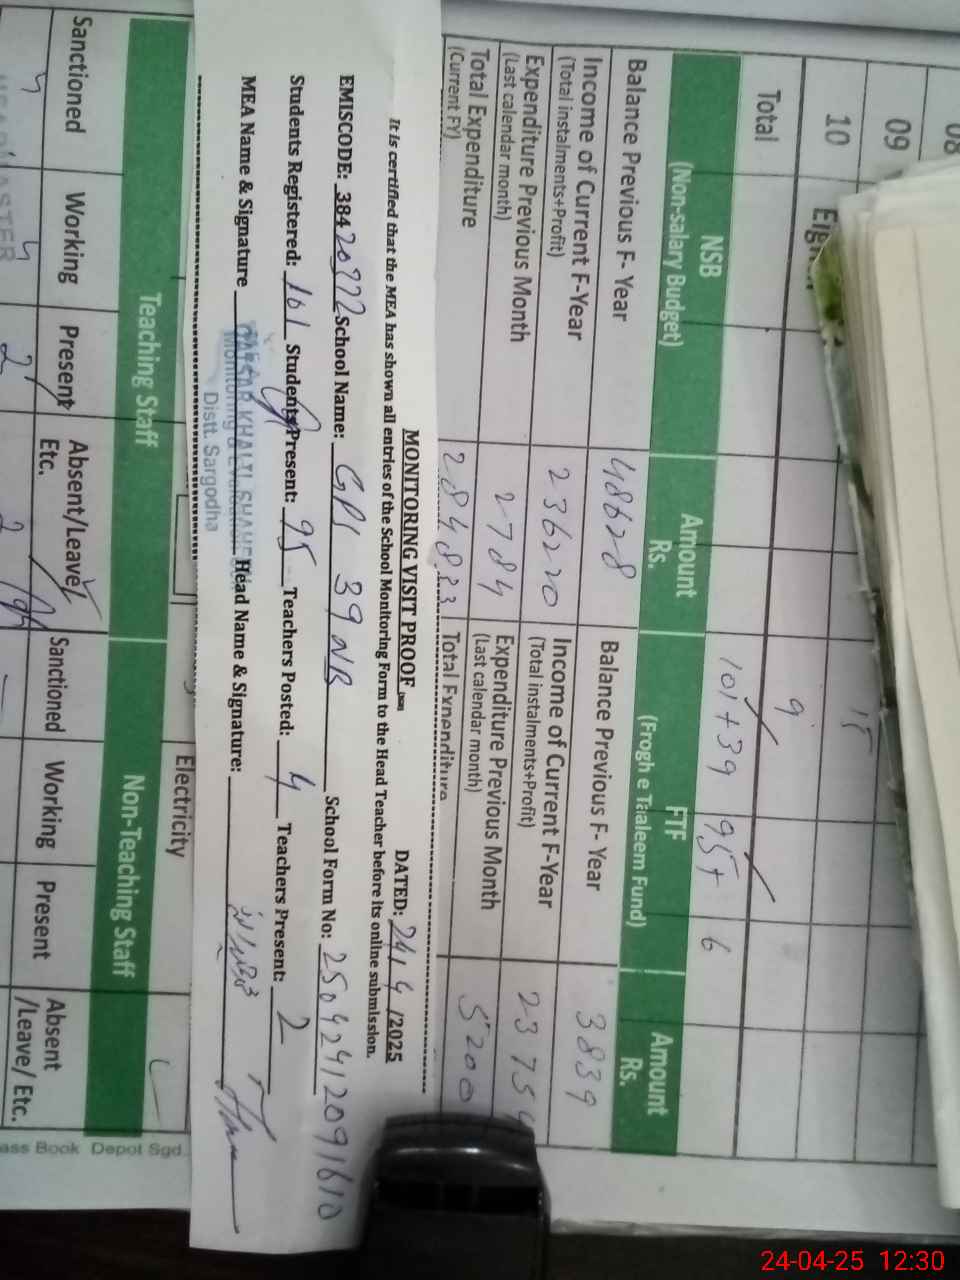 08
09
10
15
Total
9
101+39 95+ 6
NSB
(Non-salary Budget)
Amount
Rs.
FTF
(Frogh e Taaleem Fund)
Amount
Rs.
Balance Previous F- Year
48628
Balance Previous F- Year
3839
Income of Current F-Year
(Total instalments+Profit)
236220
Income of Current F-Year
(Total instalments+Profit)
23754
Expenditure Previous Month
(Last calendar month)
2784
Expenditure Previous Month
(Last calendar month)
5200
Total Expenditure
(Current FY)
284833
Total Expenditure
MONITORING VISIT PROOF
DATED: 24/4/2025
It is certified that the MEA has shown all entries of the School Monitoring Form to the Head Teacher before its online submission.
EMISCODE: 38420772 School Name: GPS 39 NB School Form No: 25042412091610
Students Registered: 101 Students Present: 95 Teachers Posted: 4 Teachers Present: 2
MEA Name & Signature Head Name & Signature:
Distt. Sargodha
Electricity
Teaching Staff
Non-Teaching Staff
Sanctioned
Working
Present
Absent/Leave/
Etc.
Sanctioned
Working
Present
Absent
/Leave/ Etc.
4 4 2 2
ass Book Depot Sgd.
24-04-25 12:30